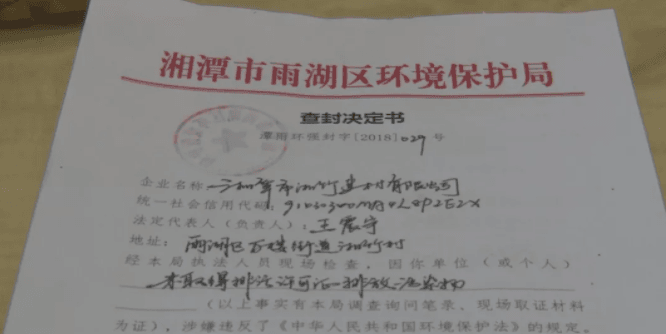 湘潭市雨湖区环境保护局
查封决定书
潭雨环强封字[2018]029号
企业名称:湘潭市湘竹建材有限公司
统一社会信用代码:
法定代表人(负责人):王震宇
地址:雨湖区万楼街道湘竹村
经本局执法人员现场检查,因你单位(或个人)
未取得排污许可证排放污染物
(以上事实有本局调查询问笔录、现场取证材料
为证),涉嫌违反了《中华人民共和国环境保护法》的规定。